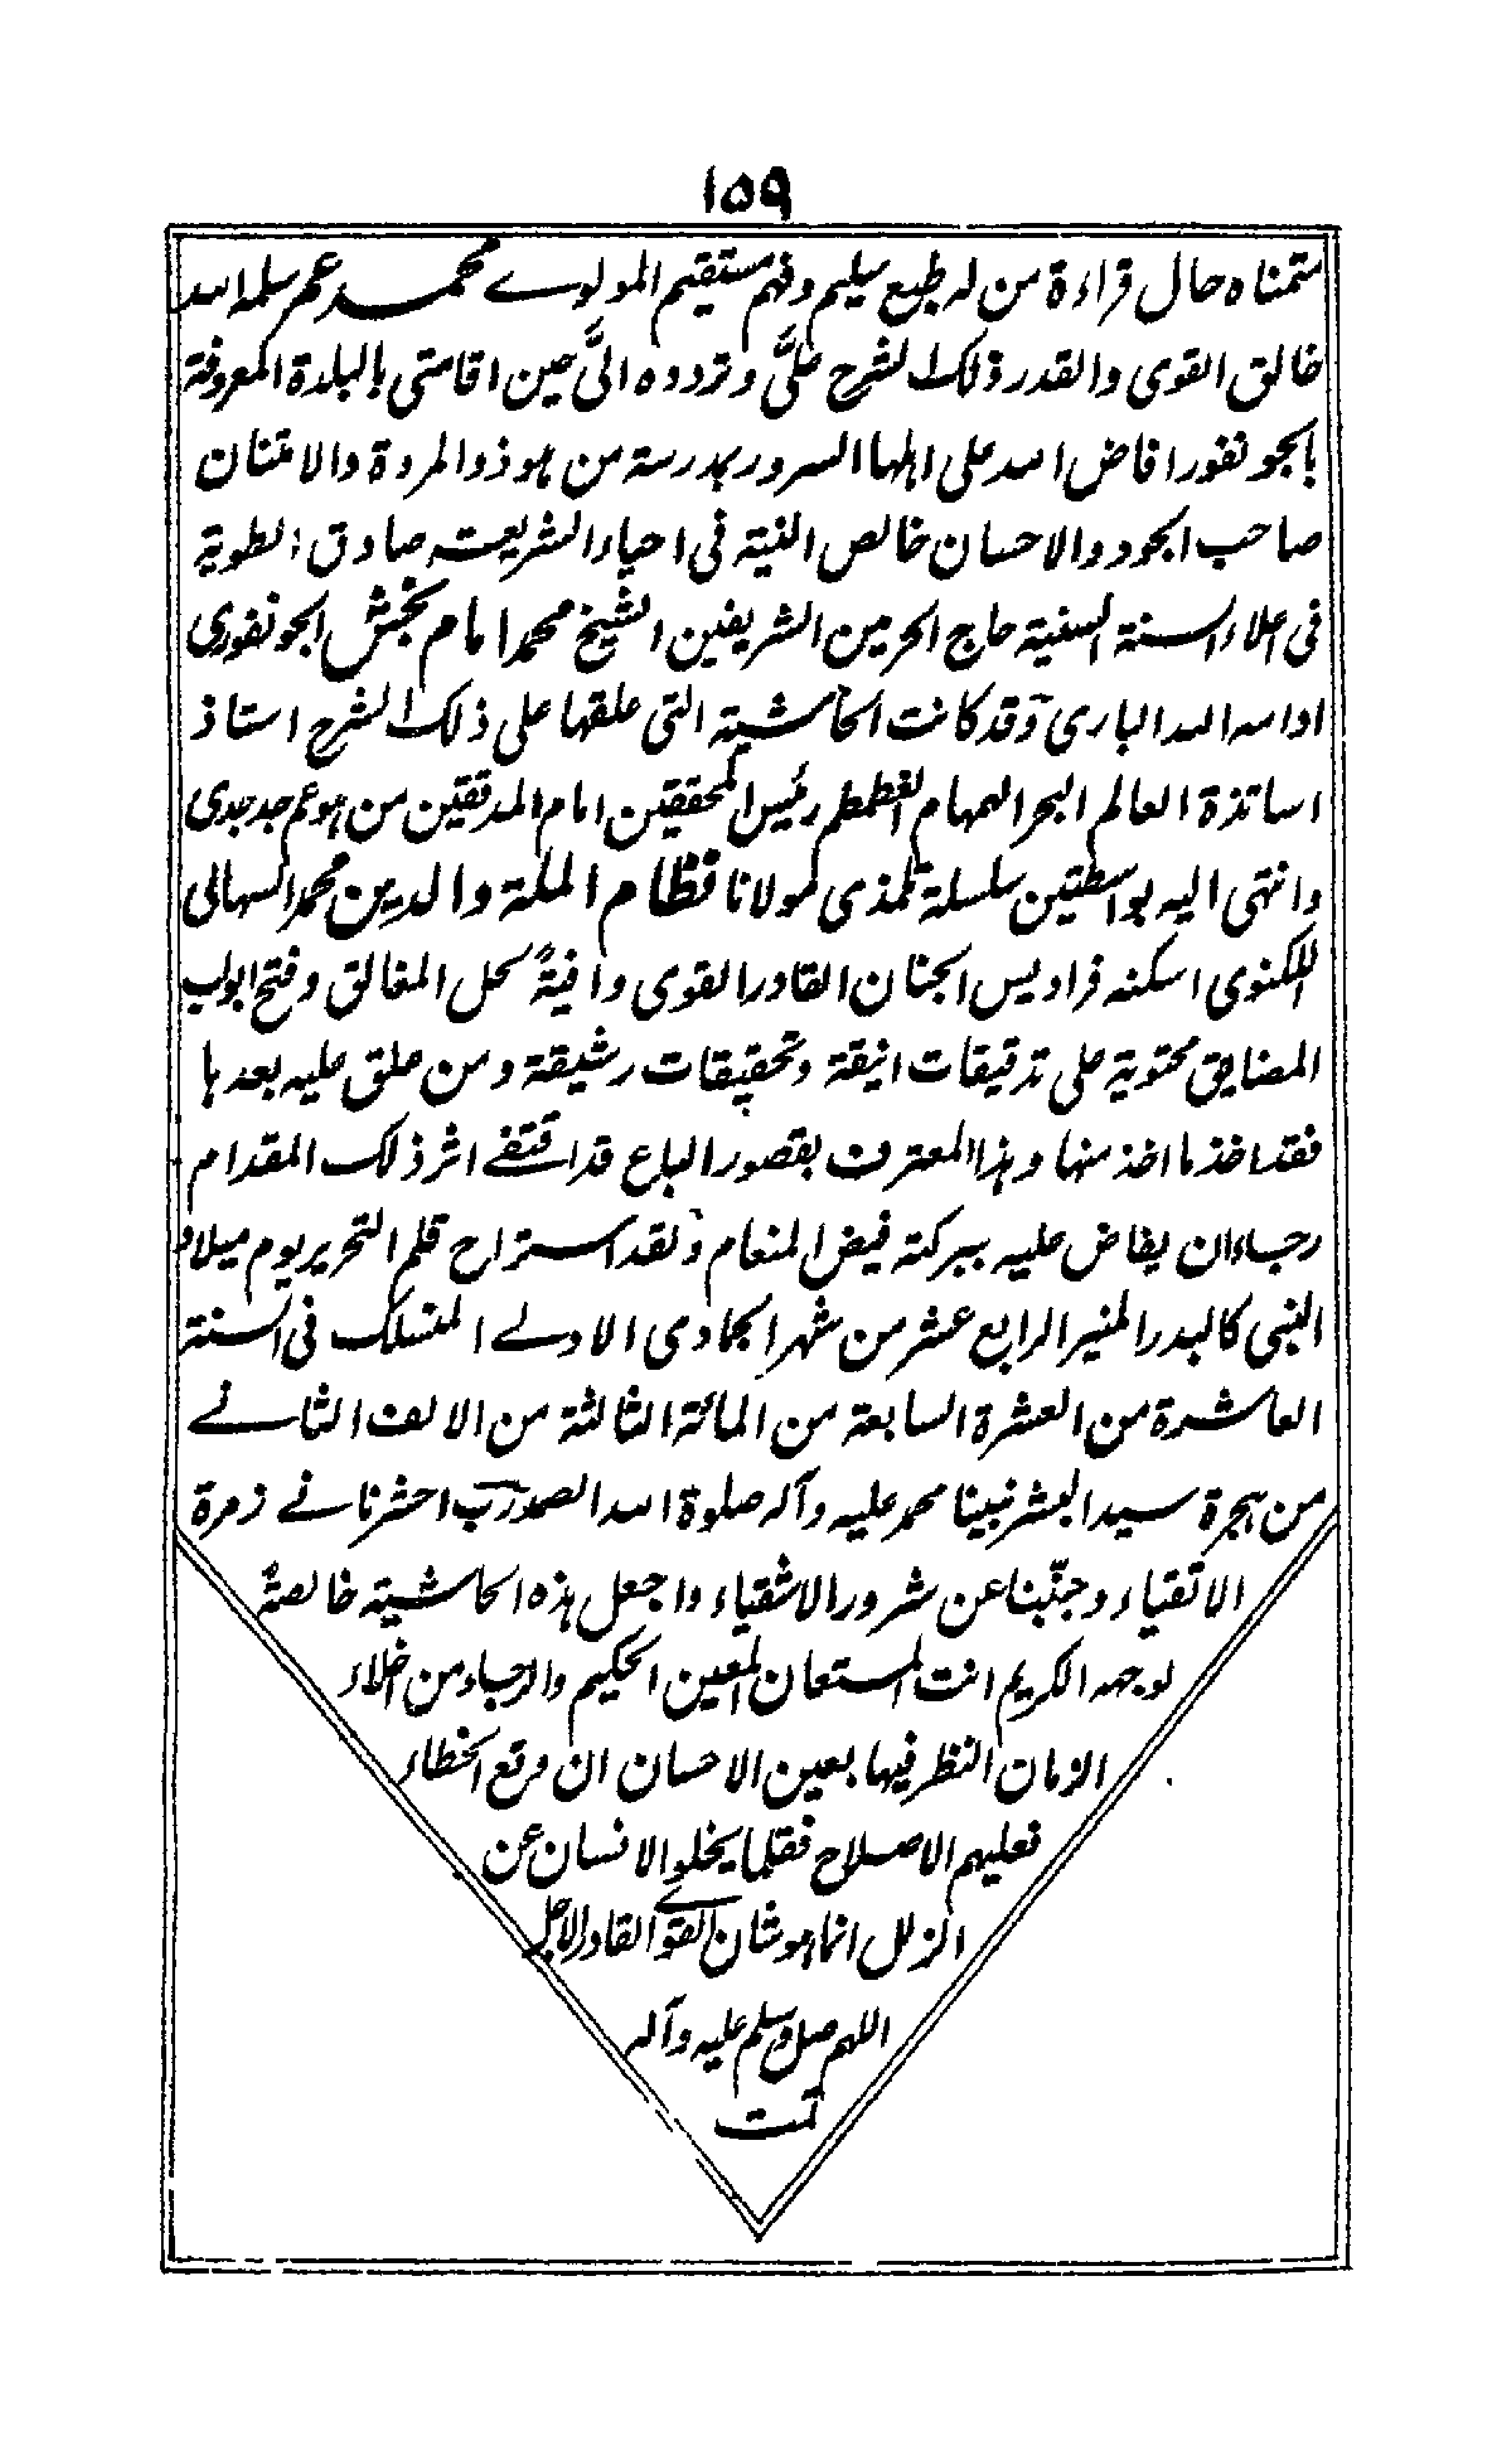 ١٥٩
متمناه حال قراءة من له طبع سليم وفهم مستقيم المولوے محمد عمر سلمه الله
خالق القوى والقدر ذلك الشرح علىَّ وتردده الىَّ حين اقامتى بالبلدة المعروفة
بالجونفور افاض الله على اهلها السرور بمدرسة من هو ذو المروة والامتنان
صاحب الجود والاحسان خالص النية فى احياء الشريعة صادق الطوية
فى اعلاء السنة السنية حاج الحرمين الشريفين الشيخ محمد امام بخش الجونفورى
ادامه الله البارى وقد كانت الحاشية التى علقها على ذلك الشرح استاذ
اساتذة العالم البحر الهمام الغطمطم رئيس المحققين امام المدققين من هو عم جد جدى
وانتهى اليه بواسطتين سلسلة تلمذى مولانا نظام الملة والدين محمد السهالى
اللكنوى اسكنه فراديس الجنان القادر القوى وافيةً لحل المغالق وفتح ابواب
المضايق محتوية على تدقيقات انيقة وتحقيقات رشيقة ومن علق عليه بعدها
فقد اخذ ما اخذ منها وهذا المعترف بقصور الباع قد اقتفے اثر ذلك المقدام
رجاء ان يفاض عليه ببركته فيض المنعام ولقد استراح قلم التحرير يوم ميلاد
النبى كالبدر المنير الرابع عشر من شهر الجمادى الاولے المنسلك فى السنة
العاشرة من العشرة السابعة من المائة الثالثة من الالف الثانے
من هجرة سيد البشر نبينا محمد عليه وآله صلوة الله الصمد رب احشرنا فے زمرة
الاتقياء وجنّبنا عن شرور الاشقياء واجعل هذه الحاشية خالصةً
لوجهه الكريم انت المستعان المعين الحكيم والرجاء من اخلاء
الزمان النظر فيها بعين الاحسان ان وقع الخطاء
فعليهم الاصلاح فقلما يخلو الانسان عن
الزلل انما هو شان القوے القادر الاجل
اللهم صل وسلم عليه وآله
تمت